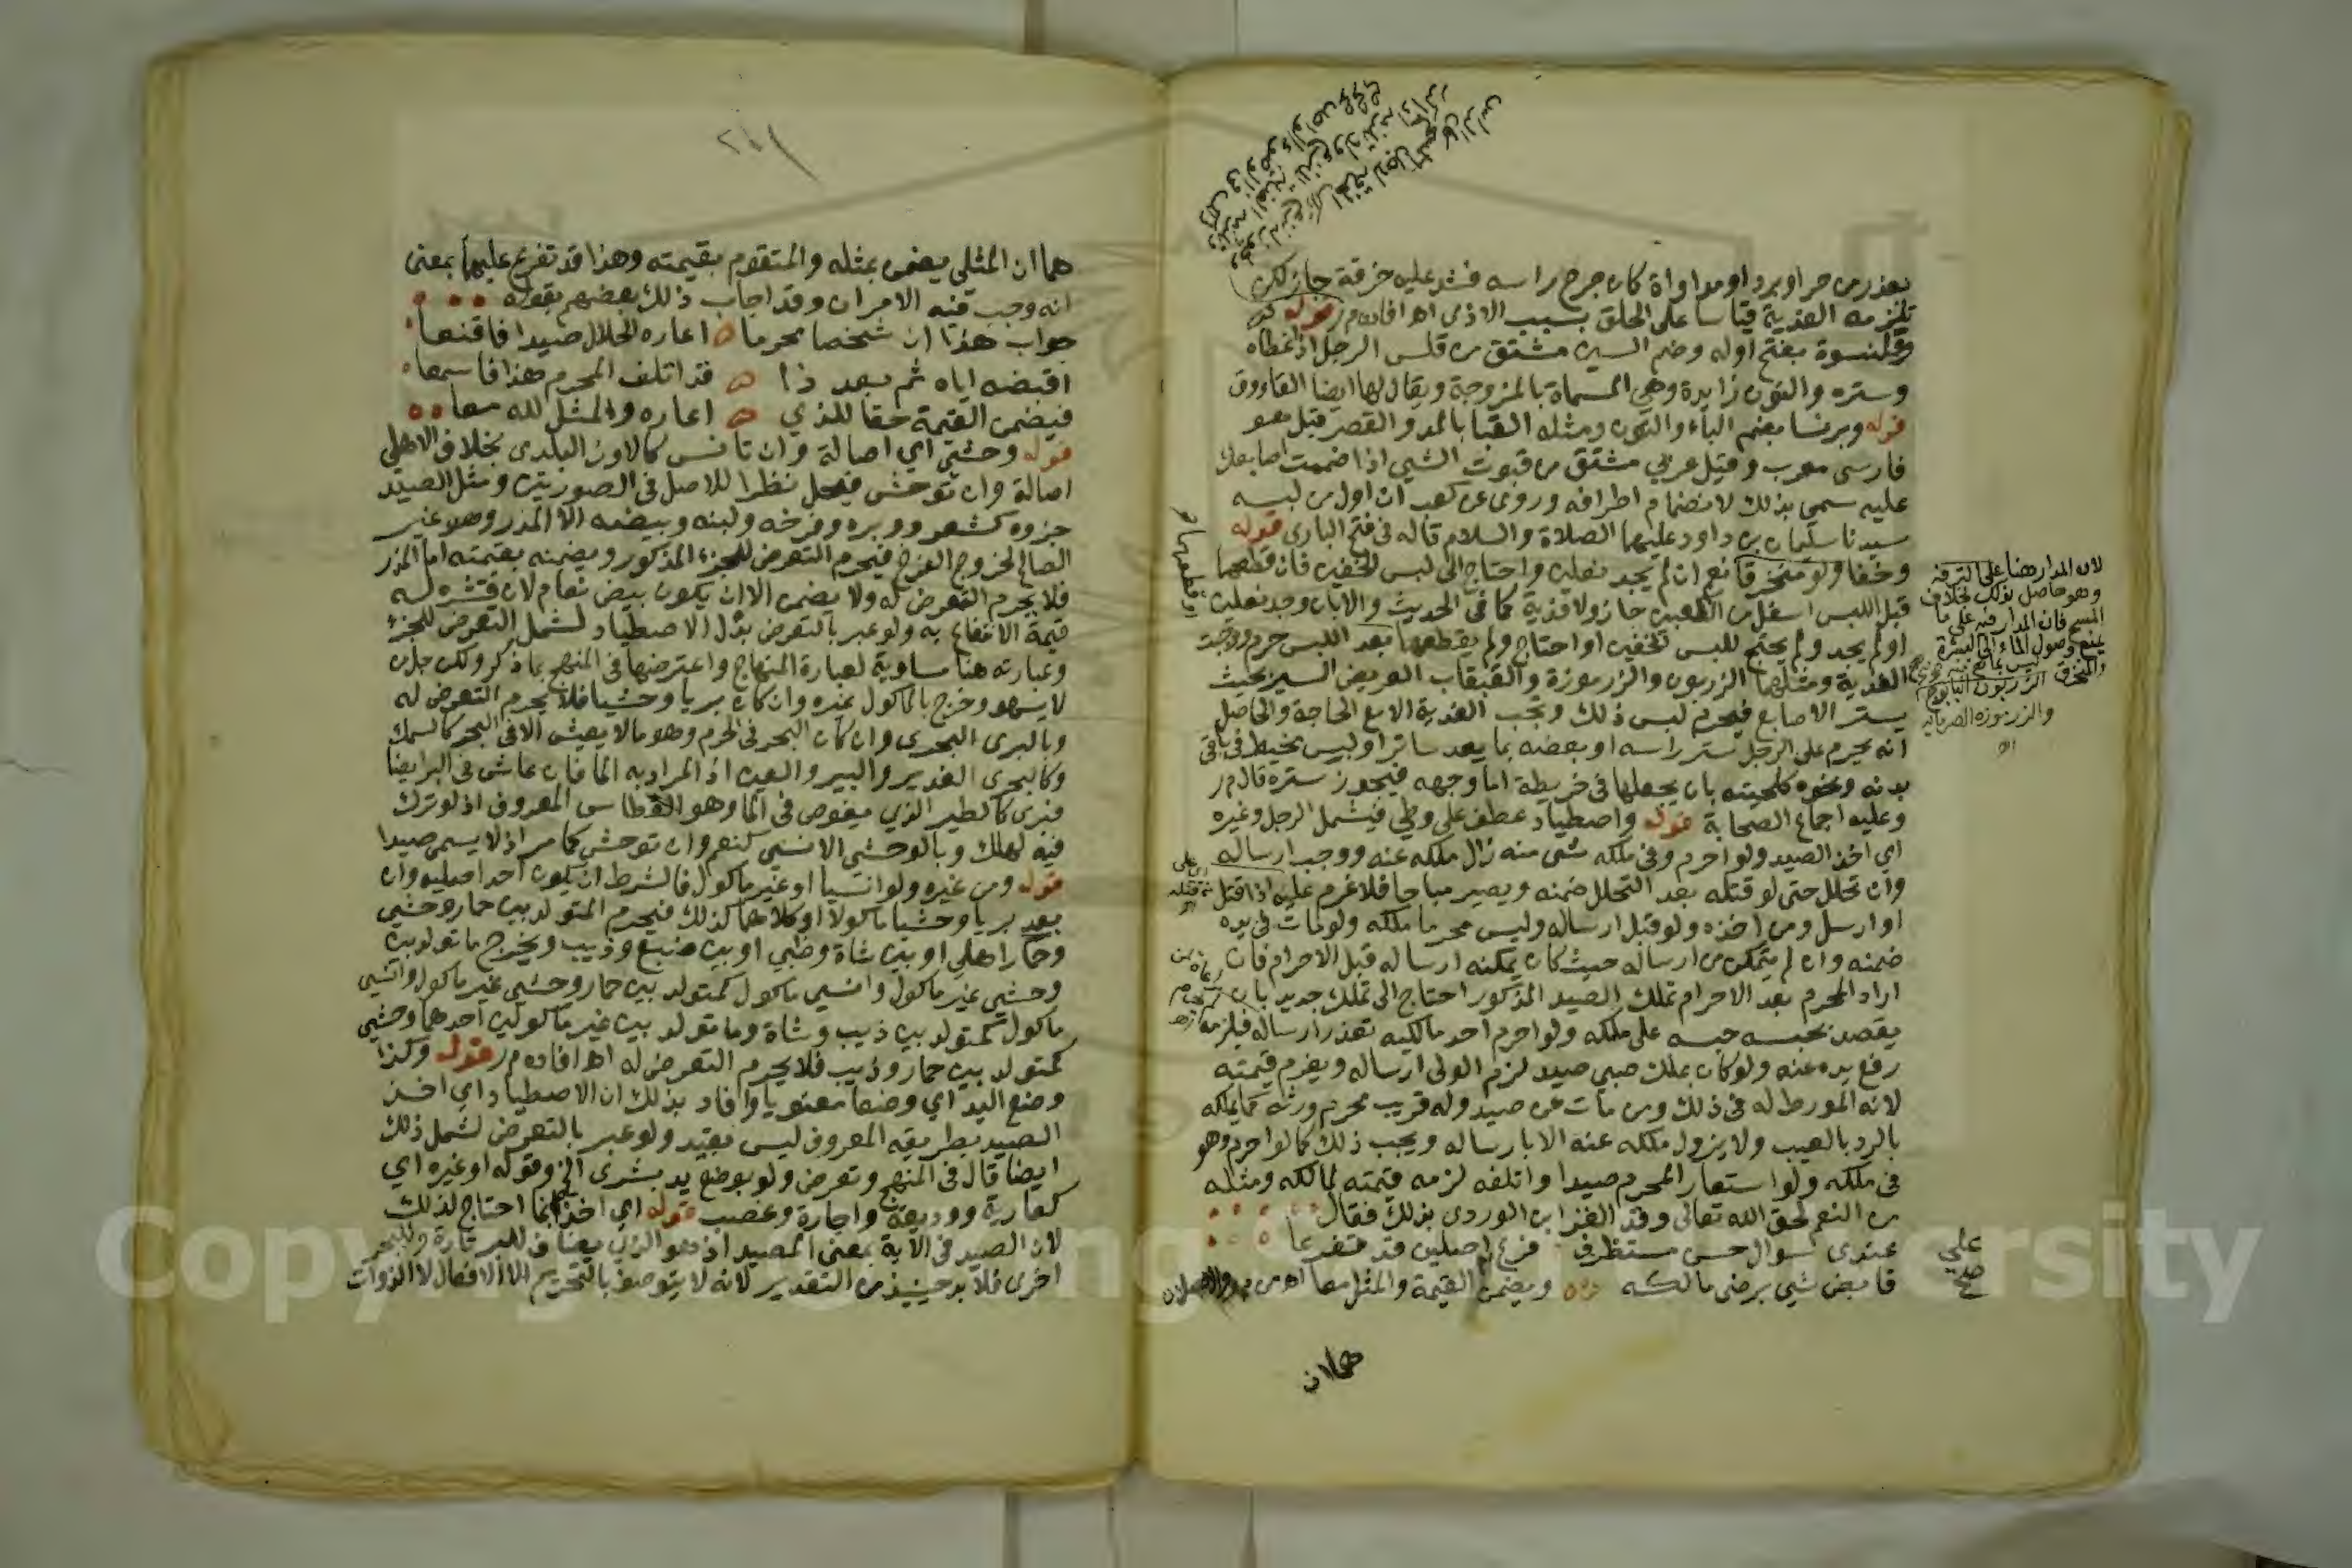 لعذر من حر او برد او مداواة كان جرح راسه فشد عليه خرقة جاز لكن
تلزمه الفدية قياسا على الحلق بسبب الاذى اهـ افاده م ر قوله
وقلنسوة بفتح اوله وضم السين مشتق من قلس الرجل اذا غطاه
وستره والنون زايدة وهي المسماة بالمزوجة ويقال لها ايضا القاووق
قوله وبرنسا بضم الباء والنون ومثله القبا بالمد والقصر قيل هو
فارسى معرب وقيل عربي مشتق من قبوت الشيى اذا ضممت اصابعك
عليه سمى بذلك لانضمام اطرافه وروى عن كعب ان اول من لبسه
سيدنا سليمان بن داود عليهما الصلاة والسلام قاله فى فتح البارى قوله
وخفا ولو متخرقا نعم ان لم يجد نعلين واحتاج الى لبس الخفين فان قطعهما
قبل اللبس اسفل من الكعبين جاز ولا فدية كما فى الحديث والا بان وجد نعلين
او لم يجد ولم يحتج للبس الخفين او احتاج ولم يقطعهما بعد اللبس حرم ووجبت
الفدية ومثلهما الزربون والزرموزة والقبقاب العريض السير بحيث
يستر الاصابع فيحرم لبس ذلك وتجب الفدية الا مع الحاجة والحاصل
انه يحرم على الرجل ستر راسه او بعضه بما يعد ساترا ولبس مخيط فى باقى
بدنه ونحوه كلحيته بان يجعلها فى خريطة اما وجهه فيجوز ستره قال م ر
وعليه اجماع الصحابة قوله واصطياد عطف على وطي فيشمل الرجل وغيره
اي اخذ الصيد ولو احرم وفى ملكه شى منه زال ملكه عنه ووجب ارساله
وان تحلل حتى لو قتله بعد التحلل ضمنه ويصير مباحا فلا غرم عليه اذا قتل
او ارسل ومن اخذه ولو قبل ارساله وليس محرما ملكه ولو مات فى يده
ضمنه وان لم يتمكن من ارساله حيث كان يمكنه ارساله قبل الاحرام فان
اراد المحرم بعد الاحرام تملك الصيد المذكور احتاج الى تملك جديد بان
يقصد بحبسه حبسه على ملكه ولو احرم احد مالكيه تعذر ارساله فيلزمه
رفع يده عنه ولو كان بملك صبي صيد لزم الولى ارساله ويغرم قيمته
لانه المورط له فى ذلك ومن مات عن صيد وله قريب محرم ورثه كما يملكه
بالرد بالعيب ولا يزول ملكه عنه الا بارساله ويجب ذلك كما لو احرم وهو
فى ملكه ولو استعار المحرم صيدا واتلفه لزمه قيمته لمالكه ومثله
من النعم لحق الله تعالى وقد الغز ابن الوردى بذلك فقال
عندى سوال حسن مستظرف فرع اصلين قد تفرعا
قابض شي برضى مالكه ويضمن القيمة والمثل معا اهـ من م ر والاصلان
هما ان
لان المدار هنا على الترفه
وهو حاصل بذلك بخلاف
المسح فان المدار فيه على ما
يمنع وصول الماء الى البشرة
والزرموزة الصرماية
اهـ
هما ان المثلى يضمن بمثله والمتقوم بقيمته وهذا قد تفرع عليهما بمعنى
انه وجب فيه الامران وقد اجاب ذلك بعضهم بقوله
جواب هذا ان شخصا محرما اعاره الحلال صيدا فاقنعا
اقبضه اياه ثم بعد ذا قد اتلف المحرم هذا فاسمعا
فيضمن القيمة حقا للذي اعاره والمثل لله معا
قوله وحشي اي اصالة وان تانس كالاوز البلدى بخلاف الاهلي
اصالة وان توحش فيحل نظرا للاصل فى الصورتين ومثل الصيد
جزوه كشعر ووبره وفرخه ولبنه وبيضه الا المذر وهو غير
الصالح لخروج الفرخ فيحرم التعرض للجزء المذكور ويضمنه بقيمته اما المذر
فلا يحرم التعرض له ولا يضمن الا ان يكون بيض نعام لان قشره له
قيمة الانتفاع به ولو عبر بالتعرض بدل الاصطياد لشمل التعرض للجزء
وعبارته هنا مساوية لعبارة المنهاج واعترضها فى المنهج بما ذكر ولكن جل من
لا يسهو وخرج بالماكول غيره وان كان بريا وحشيا فلا يحرم التعرض له
وبالبرى البحرى وان كان البحر فى الحرم وهو ما لا يعيش الا فى البحر كالسمك
وكالبحرى الغدير والبير والعين اذ المراد به الما فان عاش فى البر ايضا
فبرى كالطير الذي يغوص فى الما وهو الغطاس المعروف اذ لو ترك
فيه لهلك وبالوحشي الانسي كنعم وان توحش كما مر اذ لا يسمى صيدا
قوله ومن غيره ولو انسيا او غير ماكول فالشرط ان يكون احد اصليه وان
بعد بريا وحشيا ماكولا او كلاهما كذلك فيحرم المتولد بين حمار وحشي
وحمار اهلي او بين شاة وظبي او بين ضبع وذيب ويخرج ما تولد بين
وحشي غير ماكول وانسي ماكول كمتولد بين حمار وحشي غير ماكول وانسي
ماكول كمتولد بين ذيب وشاة وما تولد بين غير ماكولين احدهما وحشي
كمتولد بين حمار وذيب فلا يحرم التعرض له اهـ افاده م ر قوله وكذا
وضع اليد اي وضعا معنويا وافاد بذلك ان الاصطياد اي اخذ
الصيد بطريقه المعروف ليس بقيد ولو عبر بالتعرض لشمل ذلك
ايضا قال فى المنهج وتعرض ولو بوضع يد بشرى الخ وقوله او غيره اي
كعارية ووديعة واجارة وغصب قوله اي اخذ انما احتاج لذلك
لان الصيد فى الاية بمعنى المصيد اذ هو الذى يضاف للبر تارة وللبحر
اخرى فلا بد حينيذ من التقدير لانه لا يتوصف بالتحريم الا الافعال لا الذوات
Copyright © King Saud University